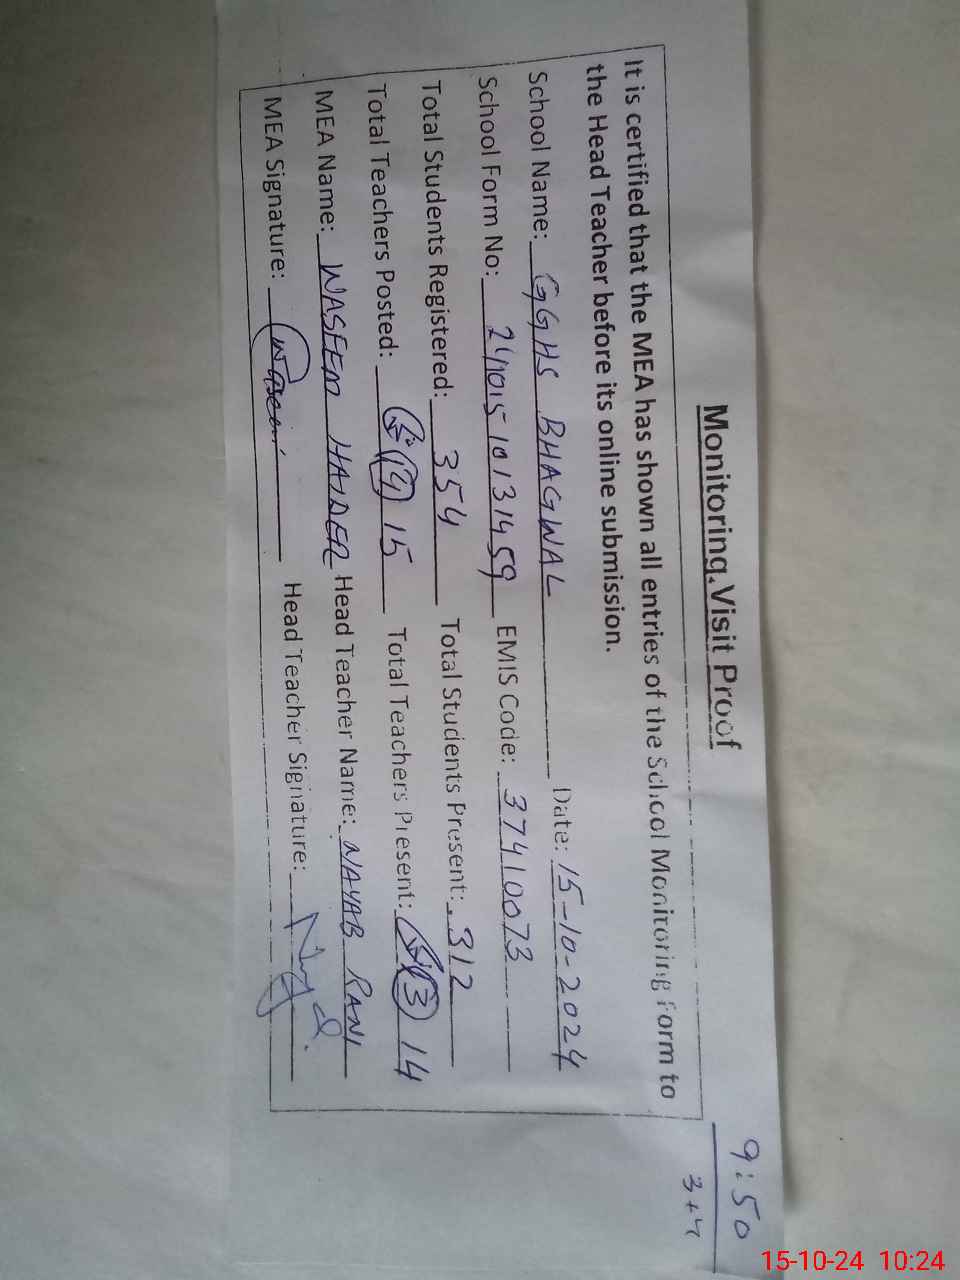 Monitoring Visit Proof
It is certified that the MEA has shown all entries of the School Monitoring Form to
the Head Teacher before its online submission.
School Name: GGHS BHAGWAL Date: 15-10-2024
School Form No: 24101510131459 EMIS Code: 37410073
Total Students Registered: 354 Total Students Present: 312
Total Teachers Posted: 14 15 Total Teachers Present: 13 14
MEA Name: WASEEM HAIDER Head Teacher Name: NAYAB RANI
MEA Signature: Waseem Head Teacher Signature:
9:50
15-10-24 10:24